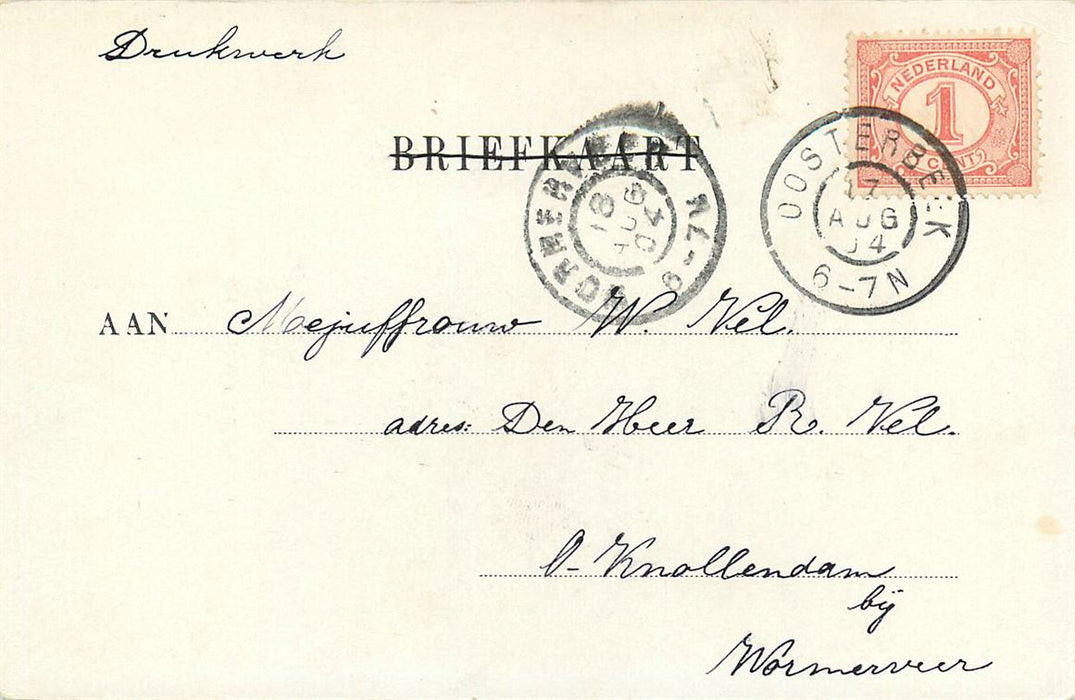 Drukwerk
NEDERLAND
1
CENT
BRIEFKAART
OOSTERBEEK
17
AUG
04
6-7N
18
AUG
04
AAN Mejuffrouw W. Vel.
adres: Den Heer R. Vel.
O-Knollendam
bij
Wormerveer